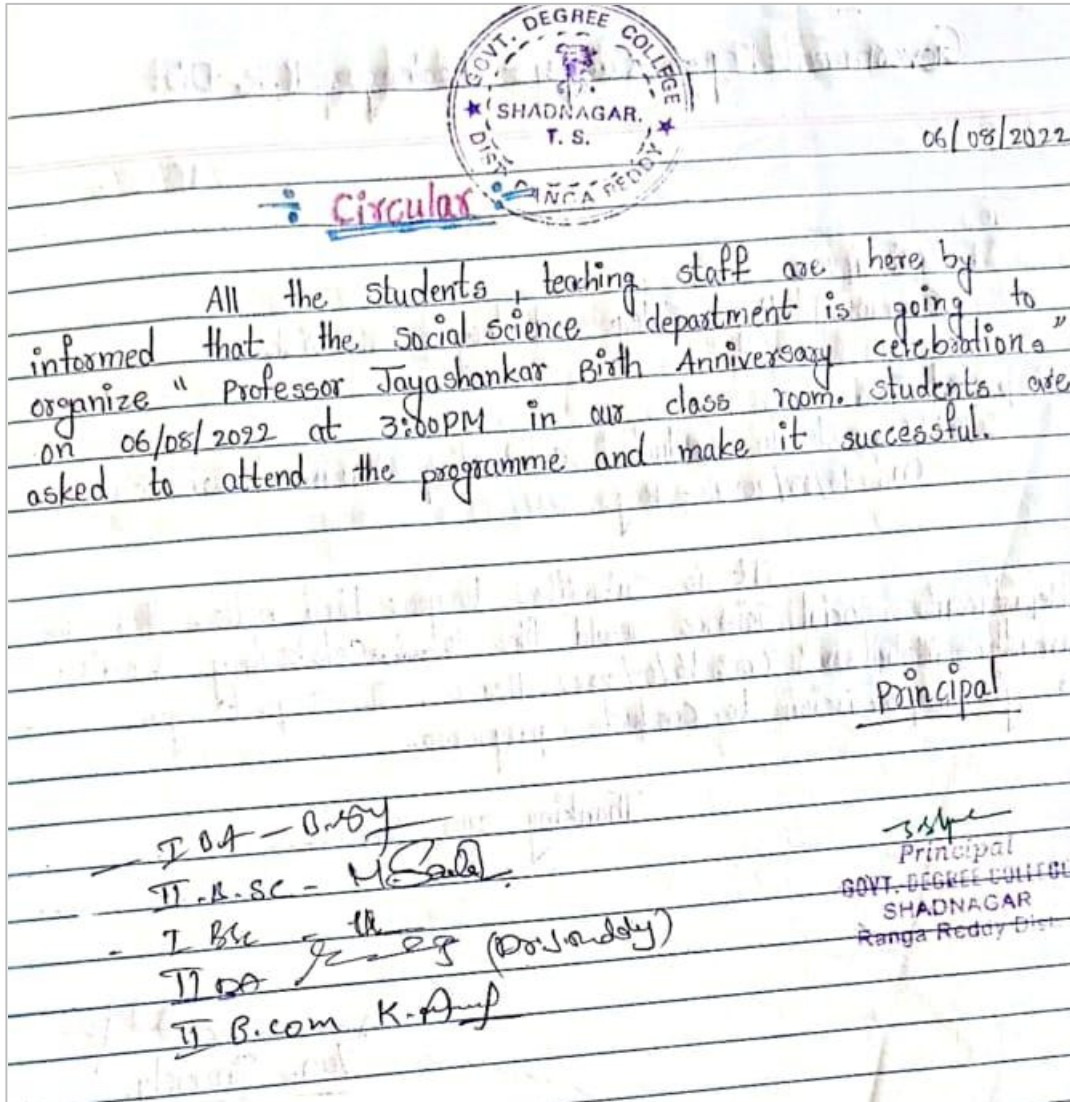 GOVT. DEGREE COLLEGE
SHADNAGAR.
T. S.
DIST. RANGA REDDY
06/08/2022
Circular
All the students, teaching staff are here by
informed that the social science department is going to
organize " Professor Jayashankar Birth Anniversary celebrations"
on 06/08/2022 at 3:00PM in our class room. students are
asked to attend the programme and make it successful.
Principal
I BA -
II . B. SC -
I BSc -
II BA
II B.com
Principal
GOVT. DEGREE COLLEGE
SHADNAGAR
Ranga Reddy Dist.